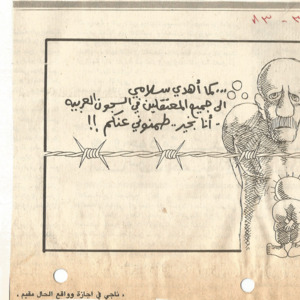 ... كما أهدي سلامي
الى جميع المعتقلين في السجون العربية
- أنا بخير .. طمنوني عنكم !!
، ناجي في اجازة وواقع الحال مقيم ،